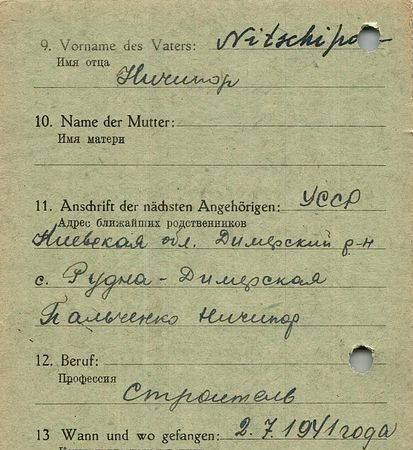 9. Vorname des Vaters: Nitschipo
Имя отца
Ничипор
10. Name der Mutter:
Имя матери
11. Anschrift der nächsten Angehörigen: УССР
Адрес ближайших родственников
Киевская обл. Димерский р-н
с. Рудна-Димерская
Пальченко Ничипор
12. Beruf:
Профессия
Строитель
13 Wann und wo gefangen: 2.7.1941 года